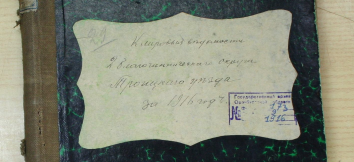 Клировые ведомости
2 благочиннического округа
Троицкаго уезда
за 1916 год
Государственный архив
173
1916